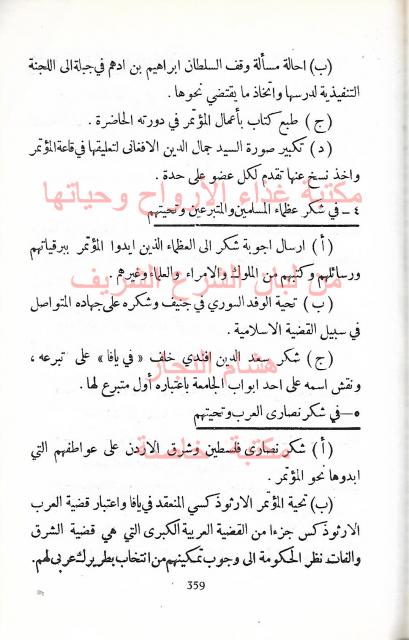 (ب) احالة مسألة وقف السلطان ابراهيم بن ادهم في جبلة الى اللجنة
التنفيذية لدرسها واتخاذ ما يقتضي نحوها .
(ج) طبع كتاب بأعمال المؤتمر في دورته الحاضرة .
(د) تكبير صورة السيد جمال الدين الافغاني لتعليقها في قاعة المؤتمر
واخذ نسخ عنها تقدم لكل عضو على حدة .
مكتبة غذاء الارواح وحياتها
٤ – في شكر عظماء المسلمين والمتبرعين وتحيتهم
(أ) ارسال اجوبة شكر الى العظماء الذين ايدوا المؤتمر ببرقياتهم
ورسائلهم وكتبهم من الملوك والامراء والعلماء وغيرهم .
من لبان الشرع الشريف
(ب) تحية الوفد السوري في جنيف وشكره على جهاده المتواصل
في سبيل القضية الاسلامية .
(ج) شكر سعد الدين افندي خلف « في يافا » على تبرعه ،
هشام النجار
ونقش اسمه على احد ابواب الجامعة باعتباره أول متبرع لها .
٥ – في شكر نصارى العرب وتحيتهم
(أ) شكر نصارى فلسطين وشرق الاردن على عواطفهم التي
مكتبة خاصة
ابدوها نحو المؤتمر .
(ب) تحية المؤتمر الارثوذكسي المنعقد في يافا واعتبار قضية العرب
الارثوذكس جزءا من القضية العربية الكبرى التي هي قضية الشرق
والفات نظر الحكومة الى وجوب تمكينهم من انتخاب بطريرك عربي لهم.
359